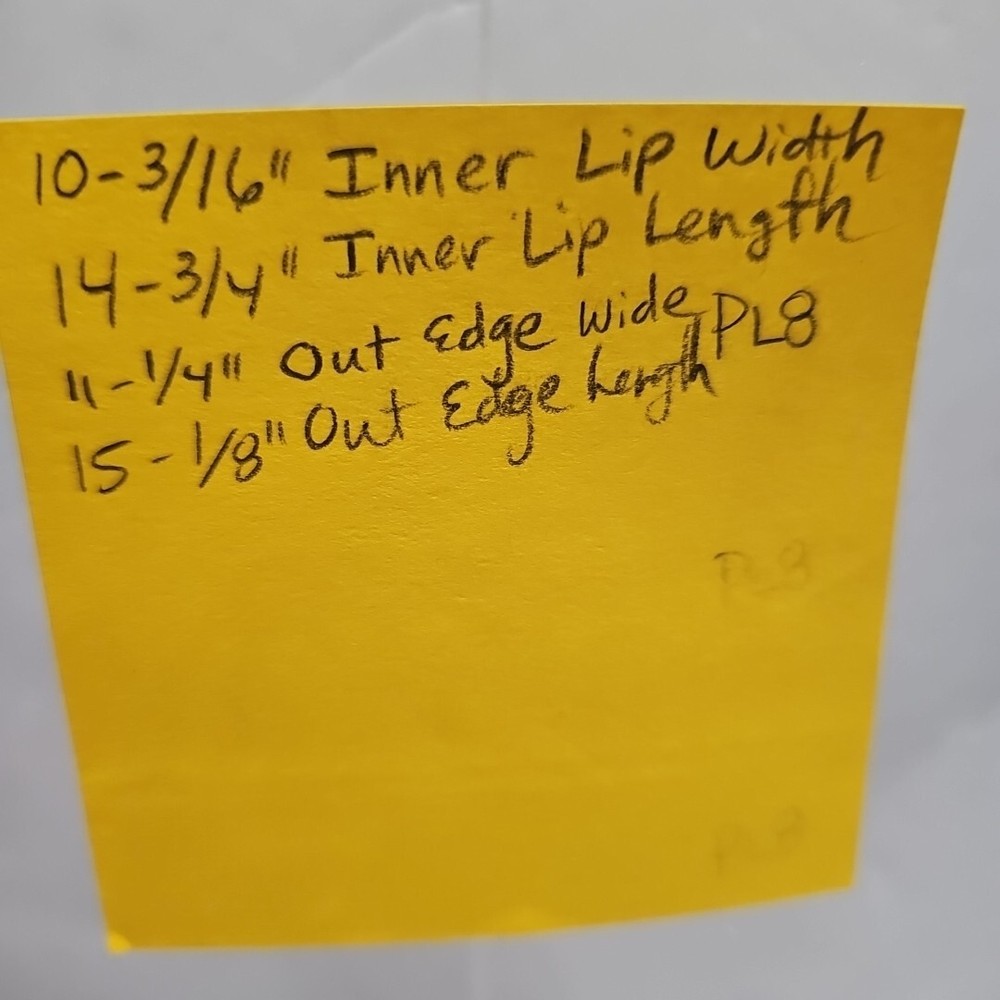 10-3/16" Inner Lip Width
14-3/4" Inner Lip Length
11-1/4" Out Edge Wide PL8
15-1/8" Out Edge Length
PL8
PL8